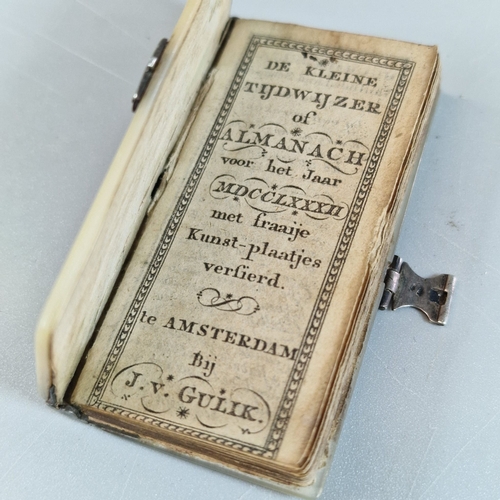 DE KLEINE
TIJDWIJZER
of
ALMANACH
voor het Jaar
MDCCLXXXII
met fraaije
Kunst-plaatjes
versierd.
te AMSTERDAM
Bij
J. V. GULIK.